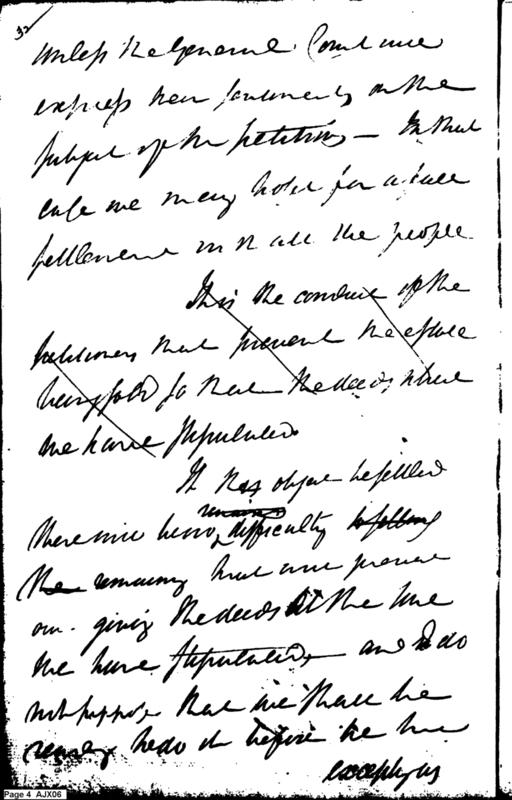 32
unless the General Court will
express their sentiments on the
subject of the petition — In that
case we may hope for a
settlement with all the people
It is the conduct of the
petitioners that prevent the estate
being sold so that the deeds
we have stipulated
If this object be settled
there will be no
remaining
difficulty
the remaining that will prevent
our giving the deeds at the time
we have stipulated — and I do
not suppose that we shall be
ready to do it before the time
except
Page 4 AJX06